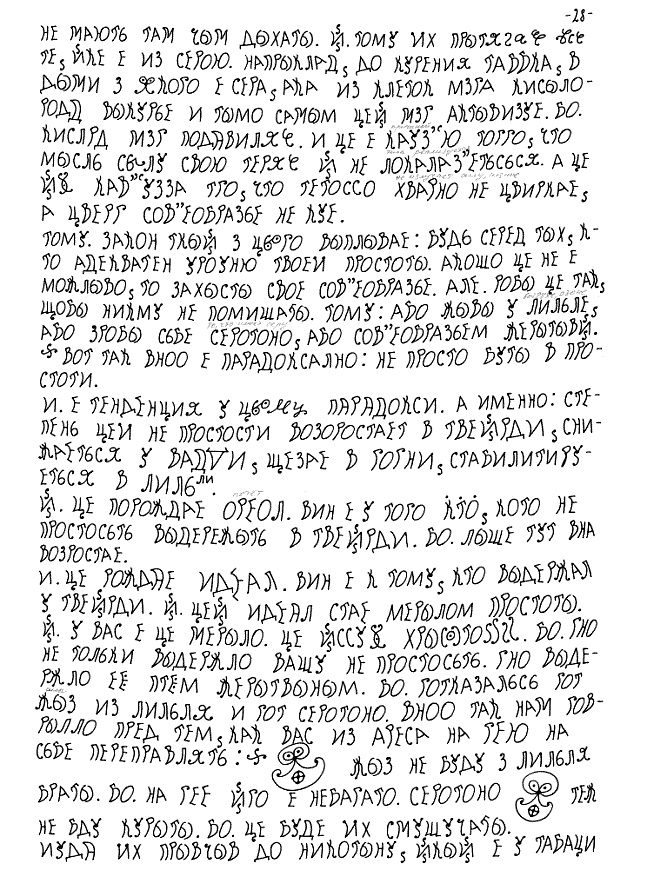 -28-
НЕ МАЮТЬ ТАМ ЧЫМ ДЫХАТЫ. Й. ТОМУ ИХ ПРЫТЯГАЕ ВСЕ
ТЕ, ЙКЕ Е ИЗ СЕРОЮ. НАПРЫКЛАД, ДО КУРЕНИЯ ТАБАКА, В
ДЫМИ З ЯКОГО Е СЕРА, АКА ИЗ КЛЕТОК МЗГА КИСЫЛО-
РОДД ВЫКУРЬЕ И ТЫМО САМЫМ ЦЕЙ МЗГ АКТЫВИЗУЕ. БО.
КИСЛРД МЗГ ПОДАВИЛЯЕ. И ЦЕ Е КАУЗ"Ю ТОГГО, ЧТО
МЫСЛЬ СЫЛУ СВОЮ ТЕРЯЕ Й НЕ ЛОКАЛАЗ"ЕТЬСЬСЯ. А ЦЕ
КАВ"УЗЗА ТГО, ЧТО ТЕГОССО ХВАРНО НЕ ЦВИРКАЕ,
А ЦВЕРГ СОВ"ЕОБРАЗЬЕ НЕ КУЕ.
ТОМУ. ЗАКОН ТКЫЙ З ЦЬОГО ВЫПЛЫВАЕ: БУДЬ СЕРЕД ТЫХ, К-
ТО АДЕКВАТЕН УРОУНЮ ТВОЕИ ПРОСТОТЫ. АКОШО ЦЕ НЕ Е
МОЖЛЫВО, ТО ЗАХЫСТЫ СВОЕ СОВ"ЕОБРАЗЬЕ. АЛЕ. РОБЫ ЦЕ ТАК,
ЩОБЫ НИКМУ НЕ ПОМИШАТЫ. ТОМУ: АБО ЖЫВЫ У ЛИЛЬЛЕ,
АБО ЗРОБЫ СЬБЕ СЕРОТОНО, АБО СОВ"ЕОБРАЗЬЕМ ЖЕРЫТВЫЙ.
ВОТ ТАК ВНОО Е ПАРАДОКСАЛНО: НЕ ПРОСТО БУТЫ В ПРО-
СТОТИ.
И. Е ТЕНДЕНЦИЯ У ЦЬОМУ ПАРАДОКСИ. А ИМЕННО: СТЕ-
ПЕНЬ ЦЕИ НЕ ПРОСТОСТИ ВОЗОРОСТАЕТ В ТВЕЙРДИ, СНИ-
ЖАЕТЬСЯ У ВАДУИ, ЩЕЗАЕ В РОГНИ, СТАБИЛИТИРУ-
ЕТЬСЯ В ЛИЛЬЛИ.
Й. ЦЕ ПОРОЖДАЕ ОРЕОЛ. ВИН Е У ТОГО КТО, КОТО НЕ
ПРОСТОСЬТЬ ВЫДЕРЕЖЫТЬ В ТВЕЙРДИ. БО. ЛЫШЕ ТУТ ВНА
ВОЗРОСТАЕ.
И. ЦЕ РОЖДАЕ ИДЕАЛ. ВИН Е К ТОМУ, КТО ВЫДЕРЖАЛ
У ТВЕЙРДИ. Й. ЦЕЙ ИДЕАЛ СТАЕ МЕРЫЛОМ ПРОСТОТЫ.
Й. У ВАС Е ЦЕ МЕРЫЛО. ЦЕ БО. ГНО
НЕ ТОЛЬКИ ВЫДЕРЖЛО ВАШУ НЕ ПРОСТОСЬТЬ. ГНО ВЫДЕ-
РЖЛО ЕЕ ПТЕМ ЖЕРЫТВЫНЫМ. БО. ГОТКАЗАЛЬСЬ ГОТ
ЖЫЗ ИЗ ЛИЛЬЛЯ И ГОТ СЕРОТОНО. ВНОО ТАК НАМ ГОВ-
РЫЛЛО ПРЕД ТЕМ, КАК ВАС ИЗ АРЕСА НА ГЕЮ НА
СЬБЕ ПЕРЕПРАВЛЯТЬ: ЖЫЗ НЕ БУДУ З ЛИЛЬЛЯ
БРАТЫ. БО. НА ГЕЕ ЙГО Е НЕБАГАТО. СЕРОТОНО ТЕЖ
НЕ БДУ КУРЫТЫ. БО. ЦЕ БУДЕ ИХ СМУЩУЧАТЫ.
ИУДА ИХ ПРЫВЧЫВ ДО НИКОТЫНУ, ЙКЫЙ Е У ТАБАЦИ